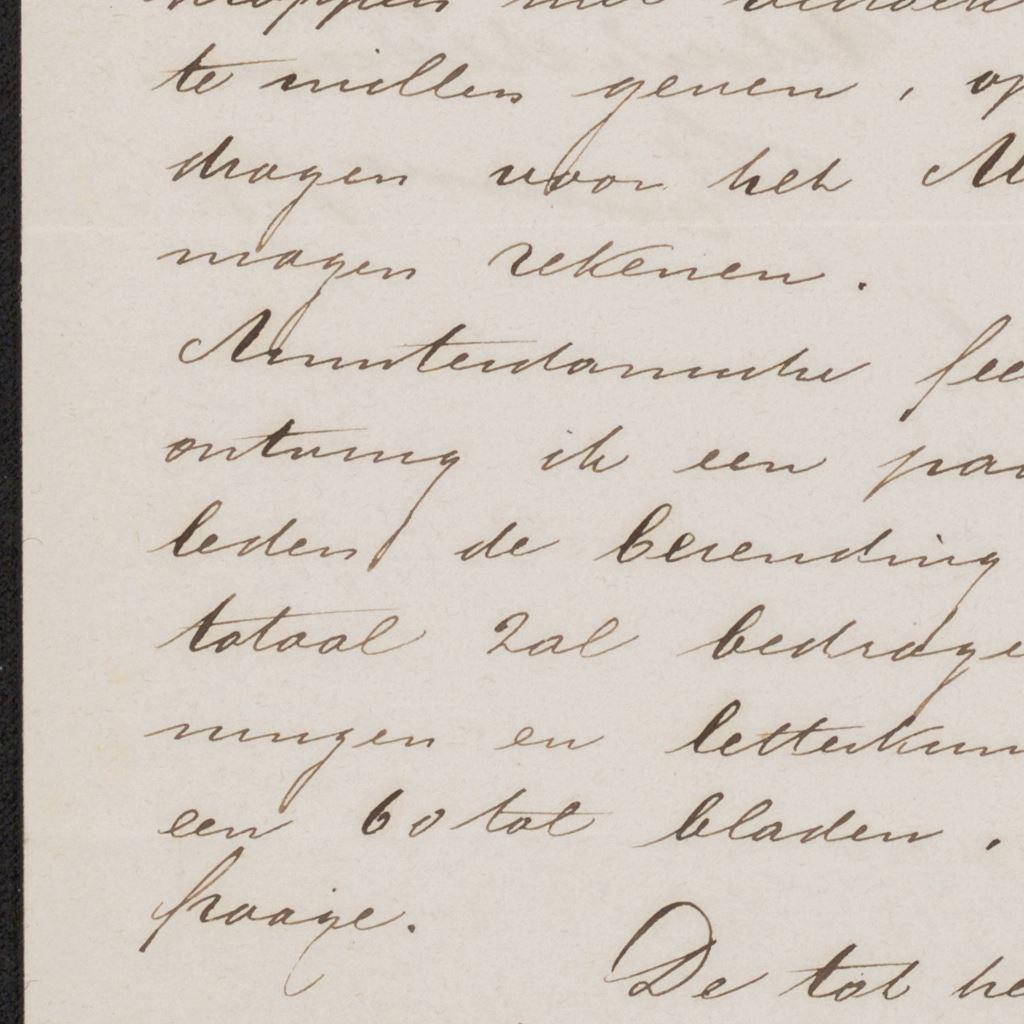 te willen geven, op
dragen voor het Al
mogen rekenen.
Amsterdamsche fee
ontving ik een paa
leden de bezending
totaal zal bedrage
ningen en letterkun
een 60 tot bladen.
fraaije.
De tot he